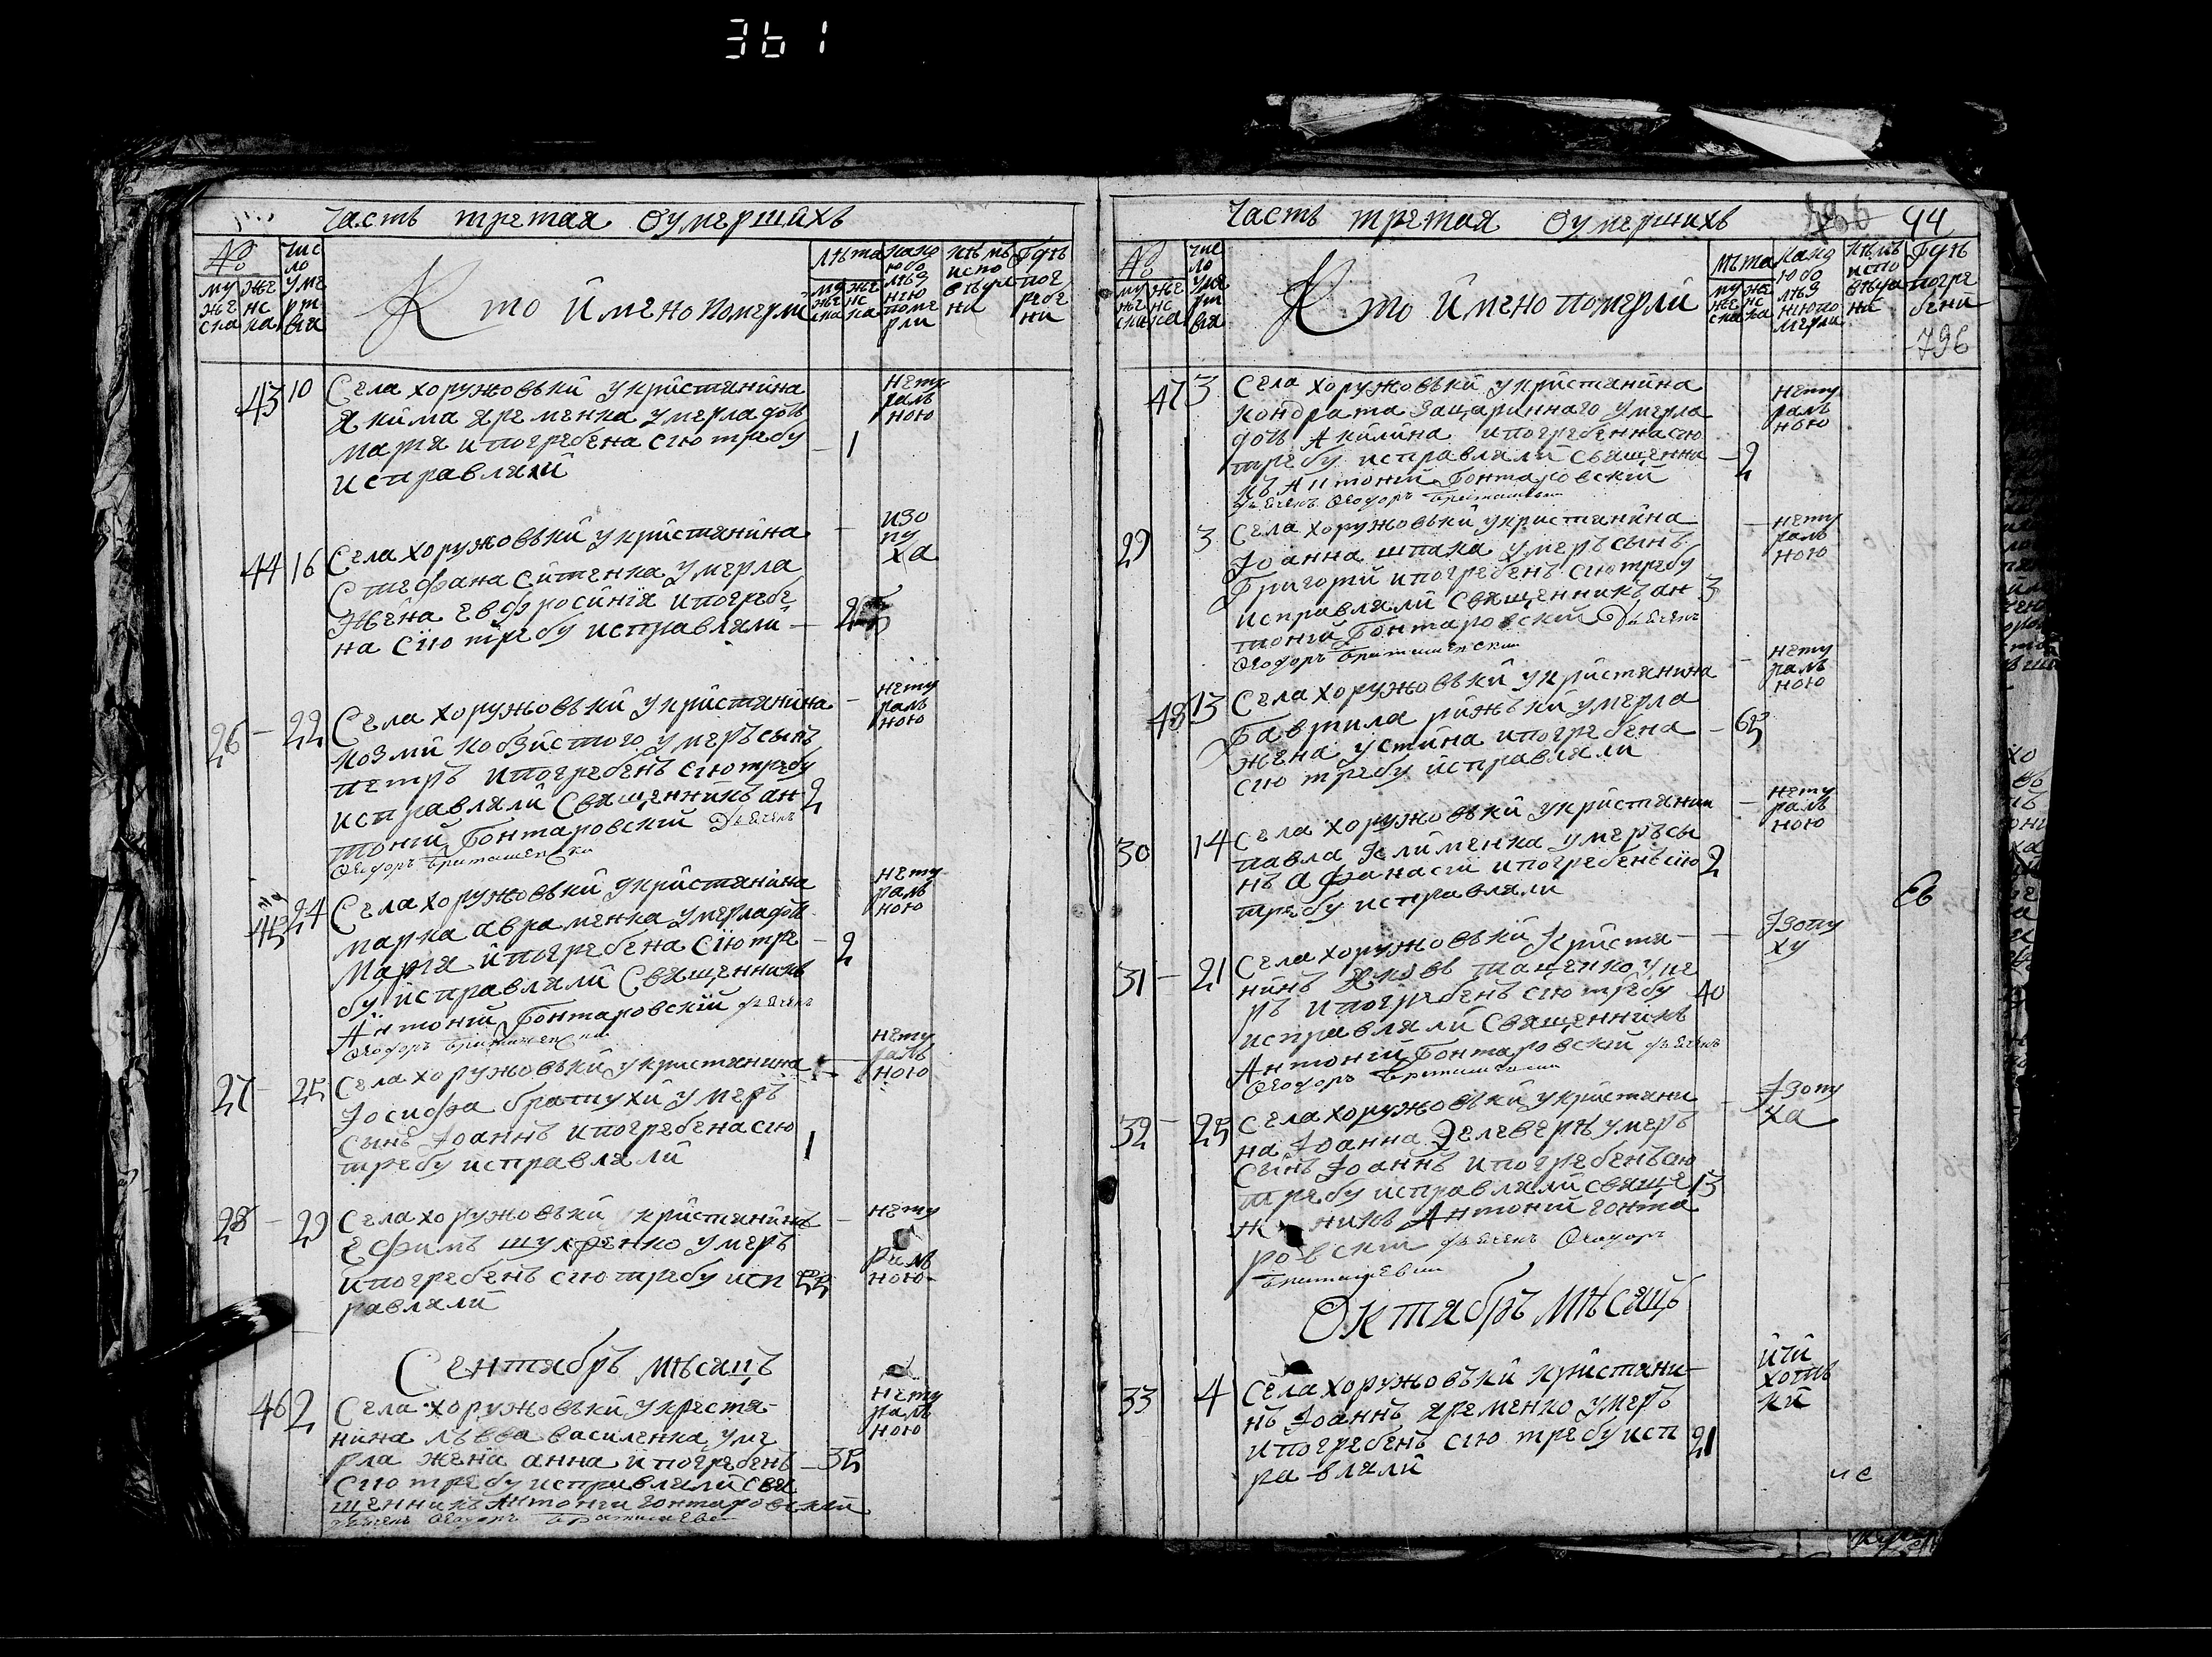 361
Часть третая Оумершихъ
№
му же
жес нс
ска ка
Чис
ло
уме
рт
вія
Кто Имено померли
лѣта
му же
же нс
ска ка
Како
юбо
лѣз
нею
поме
рли
Кѣмъ
испо
вѣдуе
ни
Гдѣ
пог
ребе
ни
43 10 Села хоружовъки у кристянина
Якима Яременка умерла дочь
Марія и погребена сію требу
исправляли
1
нату
раль
ною
44 16 Села хоружовъки у кристянина
Стефана Ситенка умерла
Жена евфросинія и погребе
на сію требу исправляли
изо
пу
ха
26 22 Села хоружовъки у кристянина
козми кобзистого умеръ сынъ
петръ и погребенъ сію требу
исправляли Священникъ ан
тоній Гонтаровскій Дьячекъ
2
нату
раль
ною
45 24 Села хоружовъки у кристянина
марка авраменка умерла дочь
Марія и погребена сію тре
бу исправляли Священникъ
Антоній Гонтаровскій дьячекъ
2
нату
раль
ною
27 25 Села хоружовъки у кристянина
Іосифа братухи умеръ
сынъ Іоаннъ и погребена сію
требу исправляли
1
нату
раль
ною
28 29 Села хоружовъки кристянинъ
ефимъ шулренко умеръ
и погребенъ сію требу исп
равляли
55
нату
раль
ною
Сентябръ мѣсяцъ
46 2 Села хоружовъки у крестя-
нина лъвва василенка уме
рла жена анна и погребенъ
сію требу исправляли свя
щенникъ Антоній гонтаровский
35
нату
раль
ною
Часть третая Оумершихъ 44
№
му же
же нс
ска ка
Чис
ло
уме
рт
вія
Кто Имено померли
лѣта
му же
же нс
ска ка
Како
юбо
лѣз
нію по
мерли
Кѣмъ
испо
вѣдуе
ни
Гдѣ
погре
бени
796
47 3 Села хоружовъки у кристянина
кондрата Зацаринного умерла
дочь Акилина и погребенна сію
требу исправляли Священни
къ Антоній Гонтаровскій
2
нату
раль
ною
29 3 Села хоружовъки у кристянина
Іоанна шпака умеръ сынъ
Григорій и погребенъ сію требу
исправляли Священникъ ан
тоній Гонтаровскій Дьячекъ
3
нату
раль
ною
48 13 Села хоружовъки у кристянина
Гаврила рижъкий умерла
жена устина и погребена
сію требу исправляли
65
нату
раль
ною
30 14 Села хоружовъки у кристянин
павла Клименка умеръ сы
нъ афанасій и погребенъ сію
требу исправляли
2
нату
раль
ною
31 21 Села хоружовъки кристя-
нинъ Яковъ тащенко уме
ръ и погребенъ сію требу
исправляли Священникъ
Антоній Гонтаровскій дьячекъ
40
Ізопу
ху
32 25 Села хоружовъки у кристяни
на Іоанна Зелевери умеръ
Сынъ Іоаннъ и погребенъ сію
требу исправляли свяще
н никъ Антоній гонта
ровскій дьячекъ Ѳеодоръ
13
Ізопу
ха
Октябръ мѣсяцъ
33 4 Села хоружовъки кристяни-
нъ Іоаннъ яременко умеръ
и погребенъ сію требу исп
равляли
21
ичи
хотъ
ки